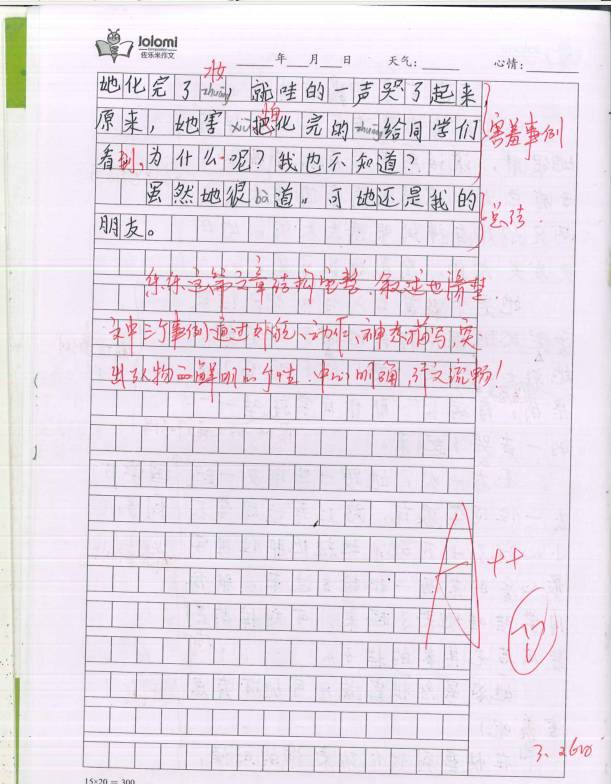 Jolomi
佐乐米作文
年 月 日 天气: 心情:
妆
她化完了zhuāng,就哇的一声哭了起来,
原来,她害xiū把化完的zhuāng给同学们
害羞事例
看到,为什么呢?我也不知道?
虽然她很bà道。可她还是我的
总结
朋友。
乐乐这篇文章结构完整,叙述也清楚
文中三个事例通过外貌、动作、神态描写,突
出了人物的鲜明的个性,中心明确,行文流畅!
A++
15×20=300